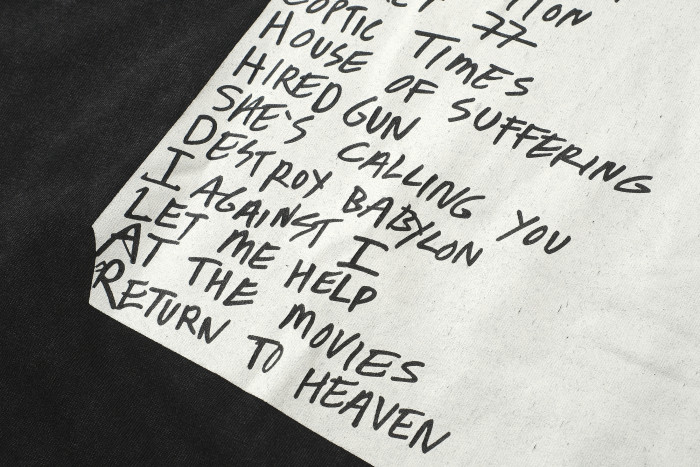 77
COPTIC TIMES
HOUSE OF SUFFERING
HIRED GUN
SHE'S CALLING YOU
DESTROY BABYLON
I AGAINST I
LET ME HELP
AT THE MOVIES
RETURN TO HEAVEN